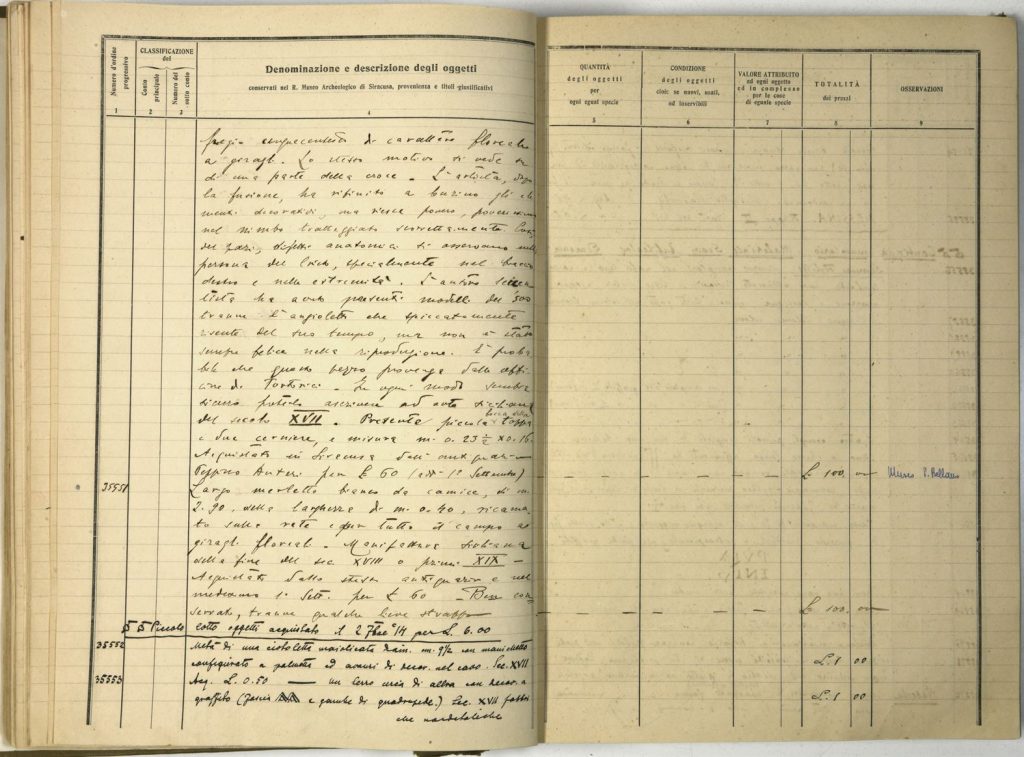 Numero d'ordine progressivo
CLASSIFICAZIONE
del
Conto principale
Numero del sotto conto
Denominazione e descrizione degli oggetti
conservati nel R. Museo Archeologico di Siracusa, provenienza e titoli giustificativi
1 2 3 4
fregio cinquecentista di carattere floreale
a giragli. Lo stesso motivo si vede su
di una parte della croce. L'artista, dopo
la fusione, ha rifinito a burino gli ele
menti decorativi, ma riesce povero,
nel nimbo tratteggiato scorrettamente.
difetti anatomici si osservano nella
persona del Cristo, specialmente nel braccio
destro e nelle estremità. L'autore seicen
tista ha avuto presenti modelli del '500
tranne l'angioletto che spiccatamente
risente del suo tempo, ma non è stato
sempre felice nella riproduzione. È proba
bile che questo pezzo provenga dalle offi
cine di Tortorici. In ogni modo sembra
sicuro poterlo ascrivere ad arte siciliana
del secolo XVII. Presenta piccola toppa
e due cerniere, e misura m. 0.23 ½ x 0.16.
Acquistato in Siracusa dall'antiquario
Peppino Auteri per £ 60 (1° Settembre)
35551 Largo merletto bianco da camice, di m.
2.90. della larghezza di m. 0.40, ricama
to sulla rete e per tutto il campo a
giragli floreali. Manifattura siciliana
della fine del sec. XVIII o primi XIX —
Acquistato dallo stesso antiquario e nel
medesimo 1° Sett. per £ 60 — Ben con
servato, tranne qualche lieve strappo
§ § Piccolo lotto oggetti acquistato il 2 7bre per L. 6.00
35552 Metà di una ciotoletta maiolicata diam. m. 9½ con manichetto
configurato a palmetta ed avanzi di decor. nel cavo. Sec. XVII
35553 Acq. L. 0.50 — un terzo circa di altra con decor. a
graffito (fascia e gambe di quadrupede.) Sec. XVII fabbri
che nordetaliche
QUANTITÀ
degli oggetti
per
ogni egual specie
CONDIZIONE
degli oggetti
cioè: se nuovi, usati,
od inservibili
VALORE ATTRIBUITO
ad ogni oggetto
ed in complesso
per le cose
di eguale specie
TOTALITÀ
dei prezzi
OSSERVAZIONI
5 6 7 8 9
£ 100, 00 Museo P. Bellomo
£ 100, 00
L. 1 00
L. 1 00